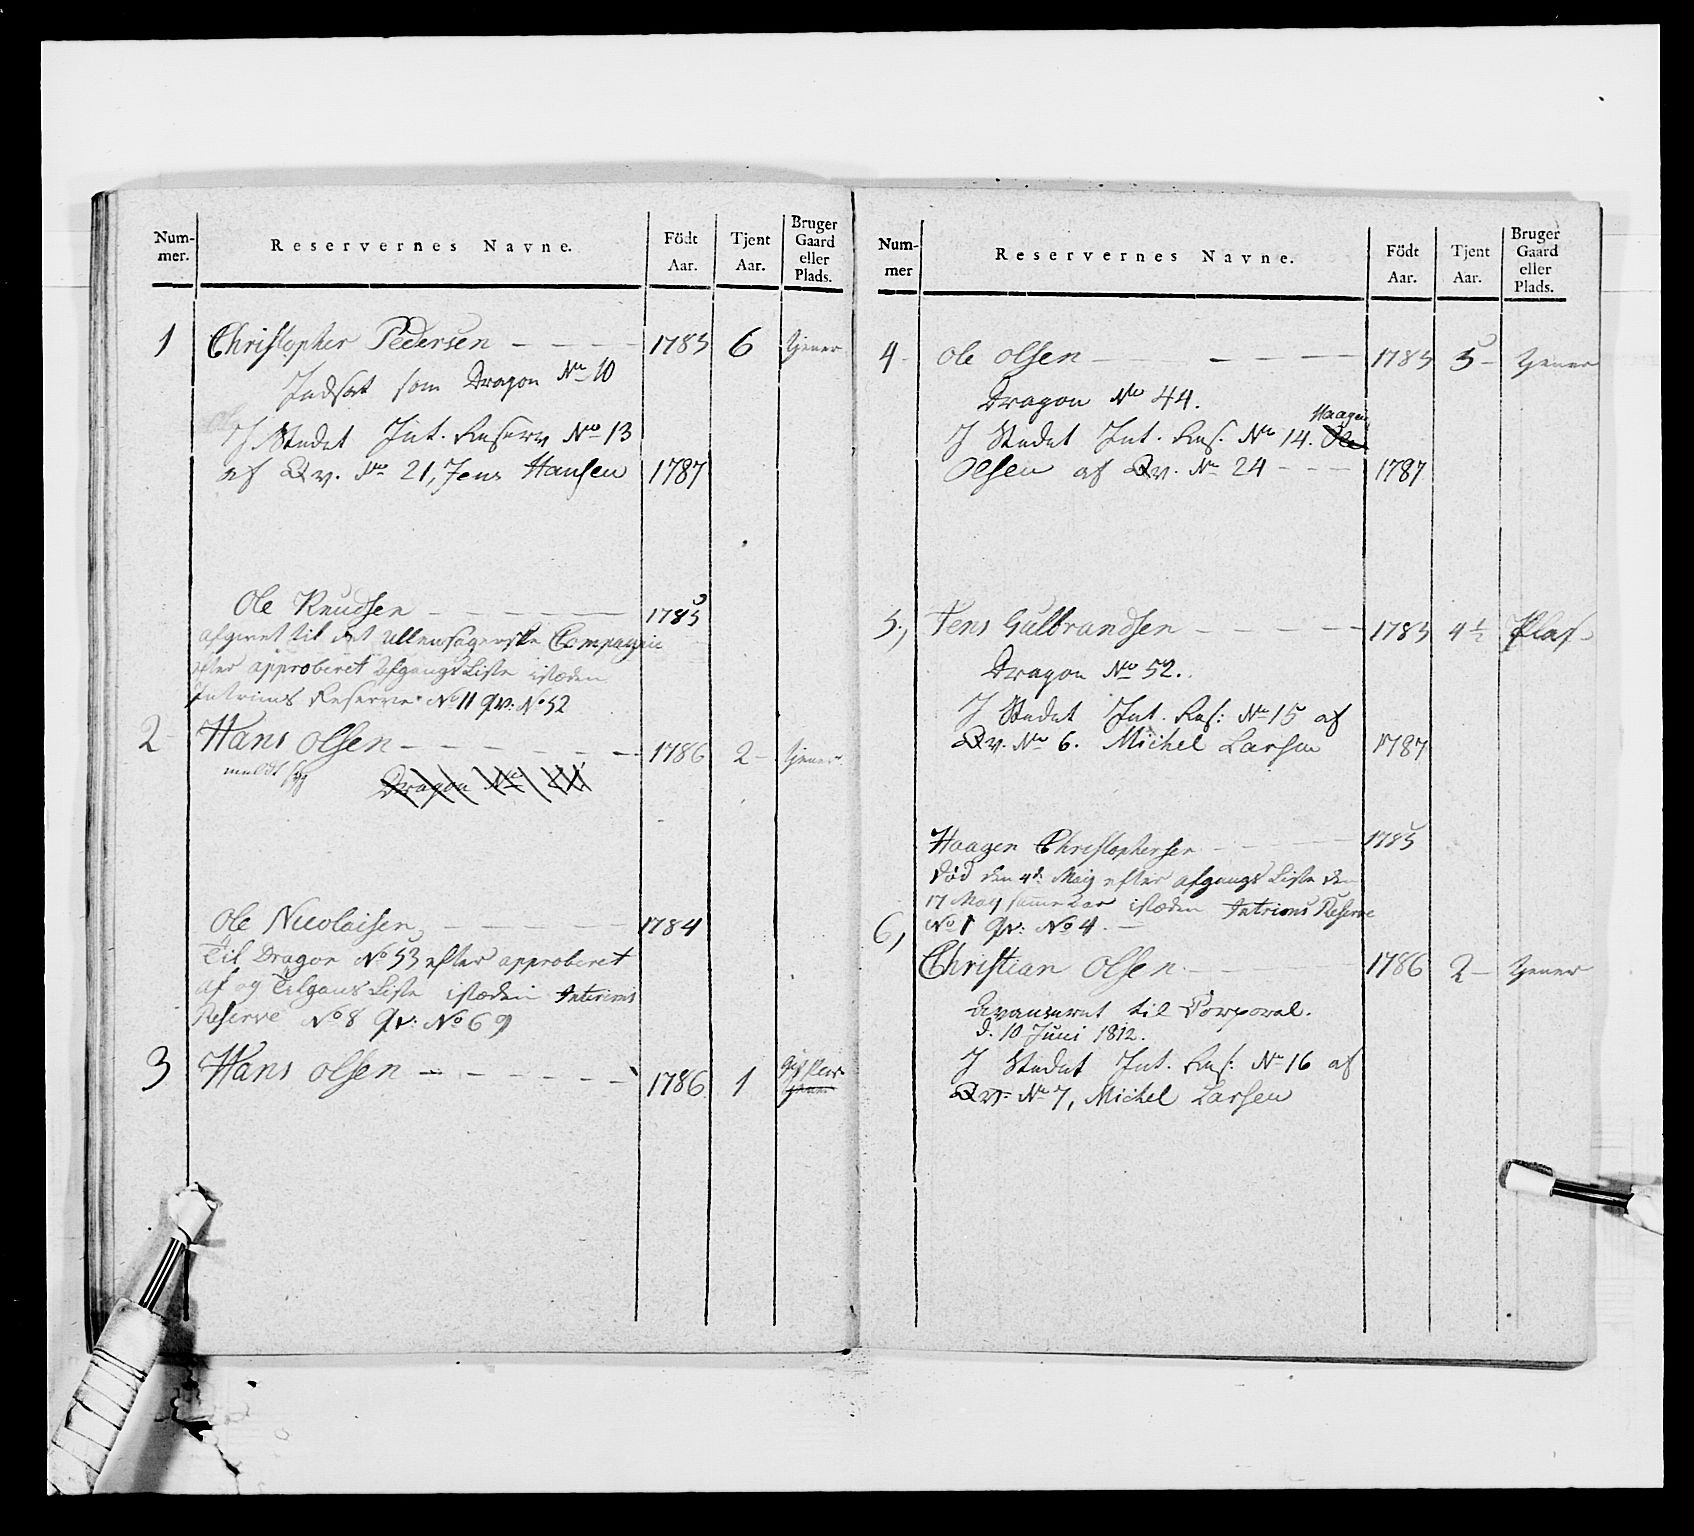 Num-
mer.
Reservernes Navne.
Födt
Aar.
Tjent
Aar.
Bruger
Gaard
eller
Plads.
1 Christopher Pedersen — 1785 6 tjener
Indsat som Dragon No 10
I Stedet Int. Reserv No 13
af Qv. No 21, Jens Hansen 1787
Ole Knudsen — 1785
afgivet til det Ullensagerske Compagnie
efter approberet Afgangs Liste isteden
Intrims Reserve No 11 qv: No 52
2 Hans Olsen — 1786 2 tjener
meldt syg Dragon No
Ole Nicolaisen, — 1784
Til Dragon No 53 efter approberet
af og Tilgans Liste isteden Intrims
Reserve No 8 qv: No 69
3 Hans Olsen — 1786 1
tjener
Num-
mer
Reservernes Navne.
Födt
Aar.
Tjent
Aar.
Bruger
Gaard
eller
Plads.
4 Ole Olsen — 1785 5 tjener
Dragon No 44.
Haagen
I Stedet Int. Res. No 14. Ole
Olsen af Qv. No 24 — 1787
5., Jens Gulbrandsen — 1785 4½ Plas
Dragon No 52.
I Stedet Int. Res: No 15 af
Qv. No 6. Michel Larsen 1787
Haagen Christophersen — 1785
død den 4de Maij efter afgangs Liste den
17 May samme Aar isteden Intrims Reserve
No 1 qv: No 4. —
6, Christian Olsen — 1786 2 tjener
Avanseret til Corporal.
d. 10 Juni 1812.
I Stedet Int. Res: No 16 af
Qv. No 7, Michel Larsen